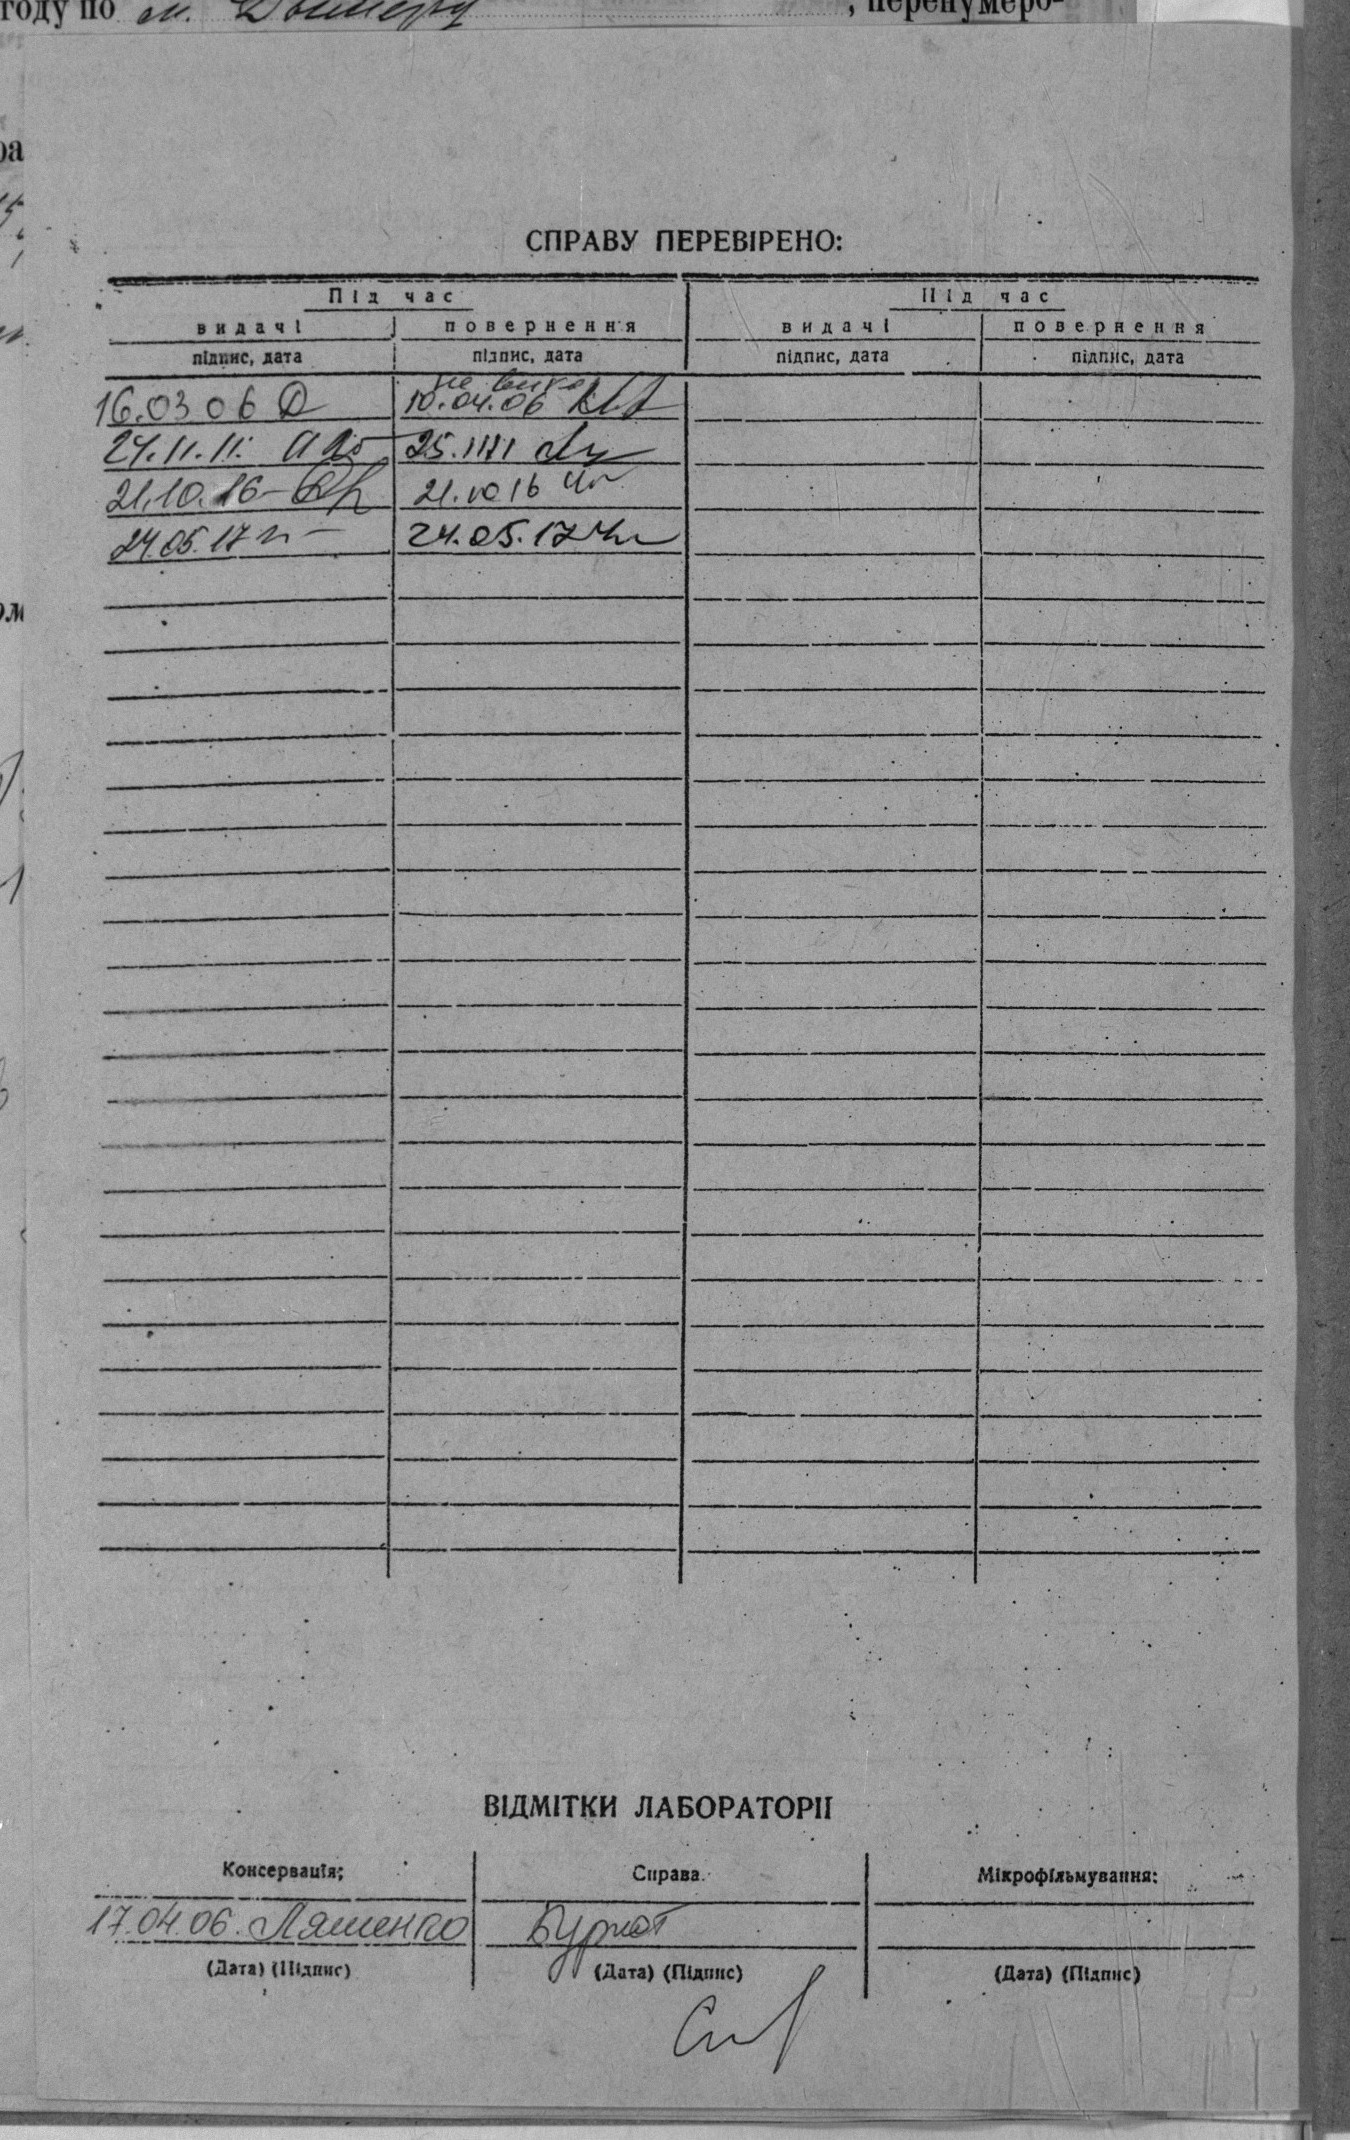 году по м. Дымеру , перенумеро-
СПРАВУ ПЕРЕВІРЕНО:
Під час Під час
видачі повернення видачі повернення
підпис, дата підпис, дата підпис, дата підпис, дата
16.03 06 10.04.06
24.11.11. 25.1111
21.10.16 21.10 16
24 05.17 24.05.17
ВІДМІТКИ ЛАБОРАТОРІІ
Консервація; Справа. Мікрофільмування:
17.04.06. Ляшенко
(Дата) (Підпис) (Дата) (Підпис) (Дата) (Підпис)